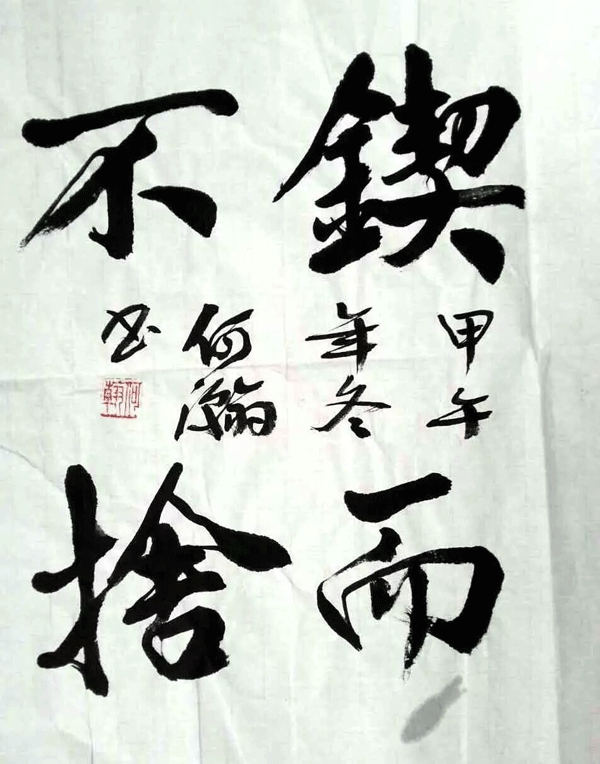 鍥而
不捨
甲午
年冬
何瀚
书
何瀚